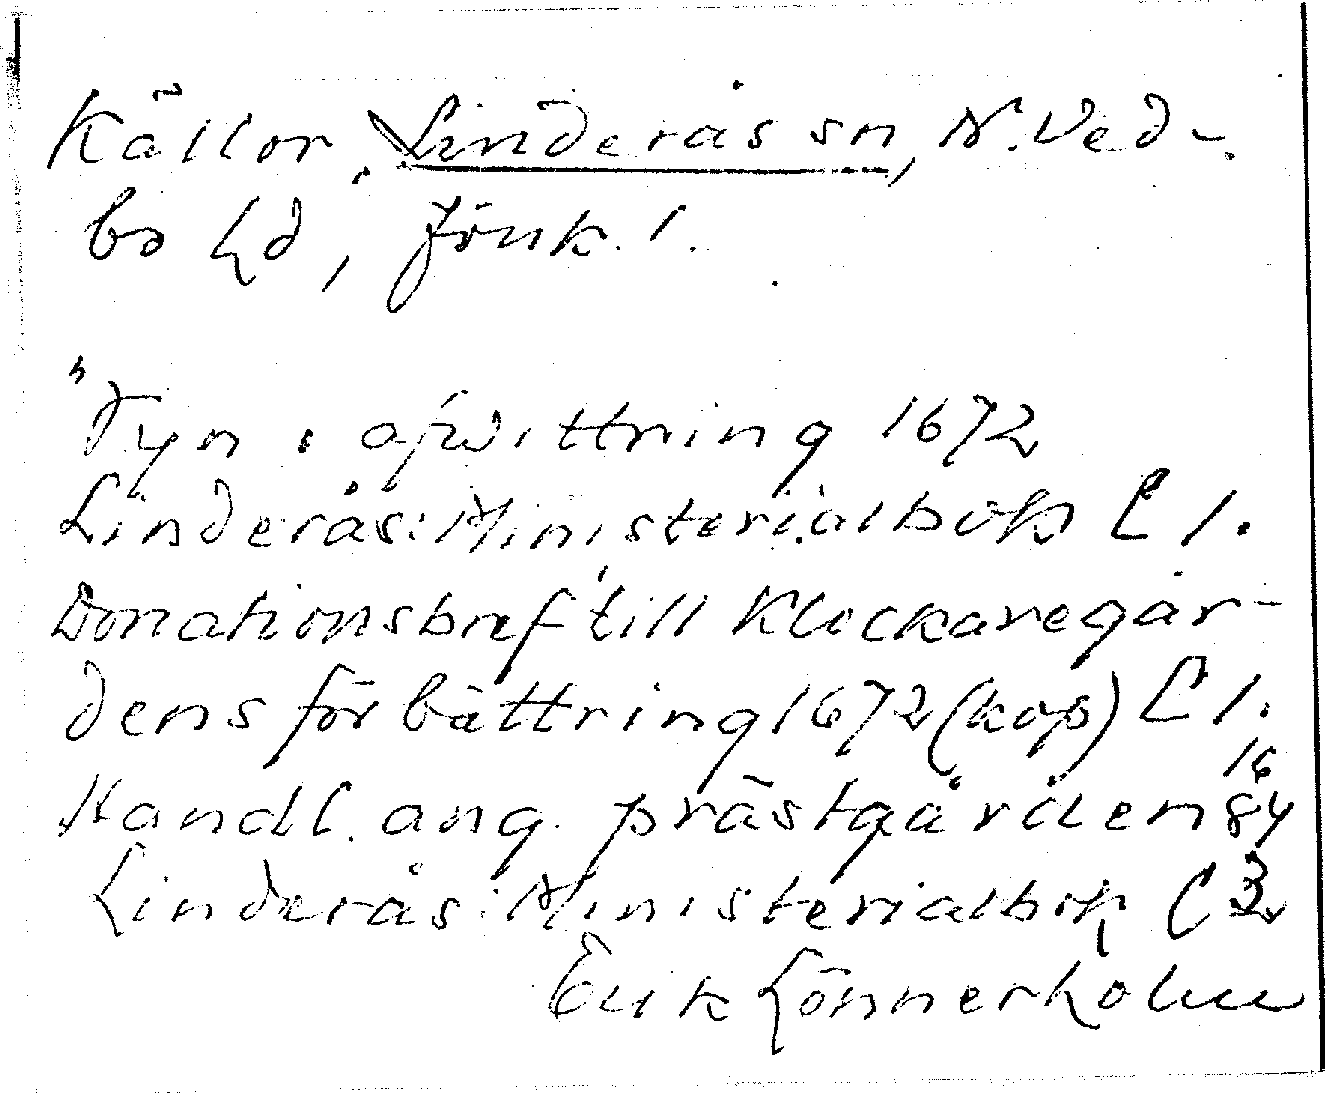 Källor. Linderås sn, N. Ved-
bo hd, Jönk. l.
"Fyn i afwittring 1672
Linderås: Ministerialbok C 1.
Donationsbref till Klockaregår-
dens förbättring 1672 (kop) C 1.
Handl. ang. prästgården 1684
Linderås: Ministerialbok C 3
Erik Lönnerholm